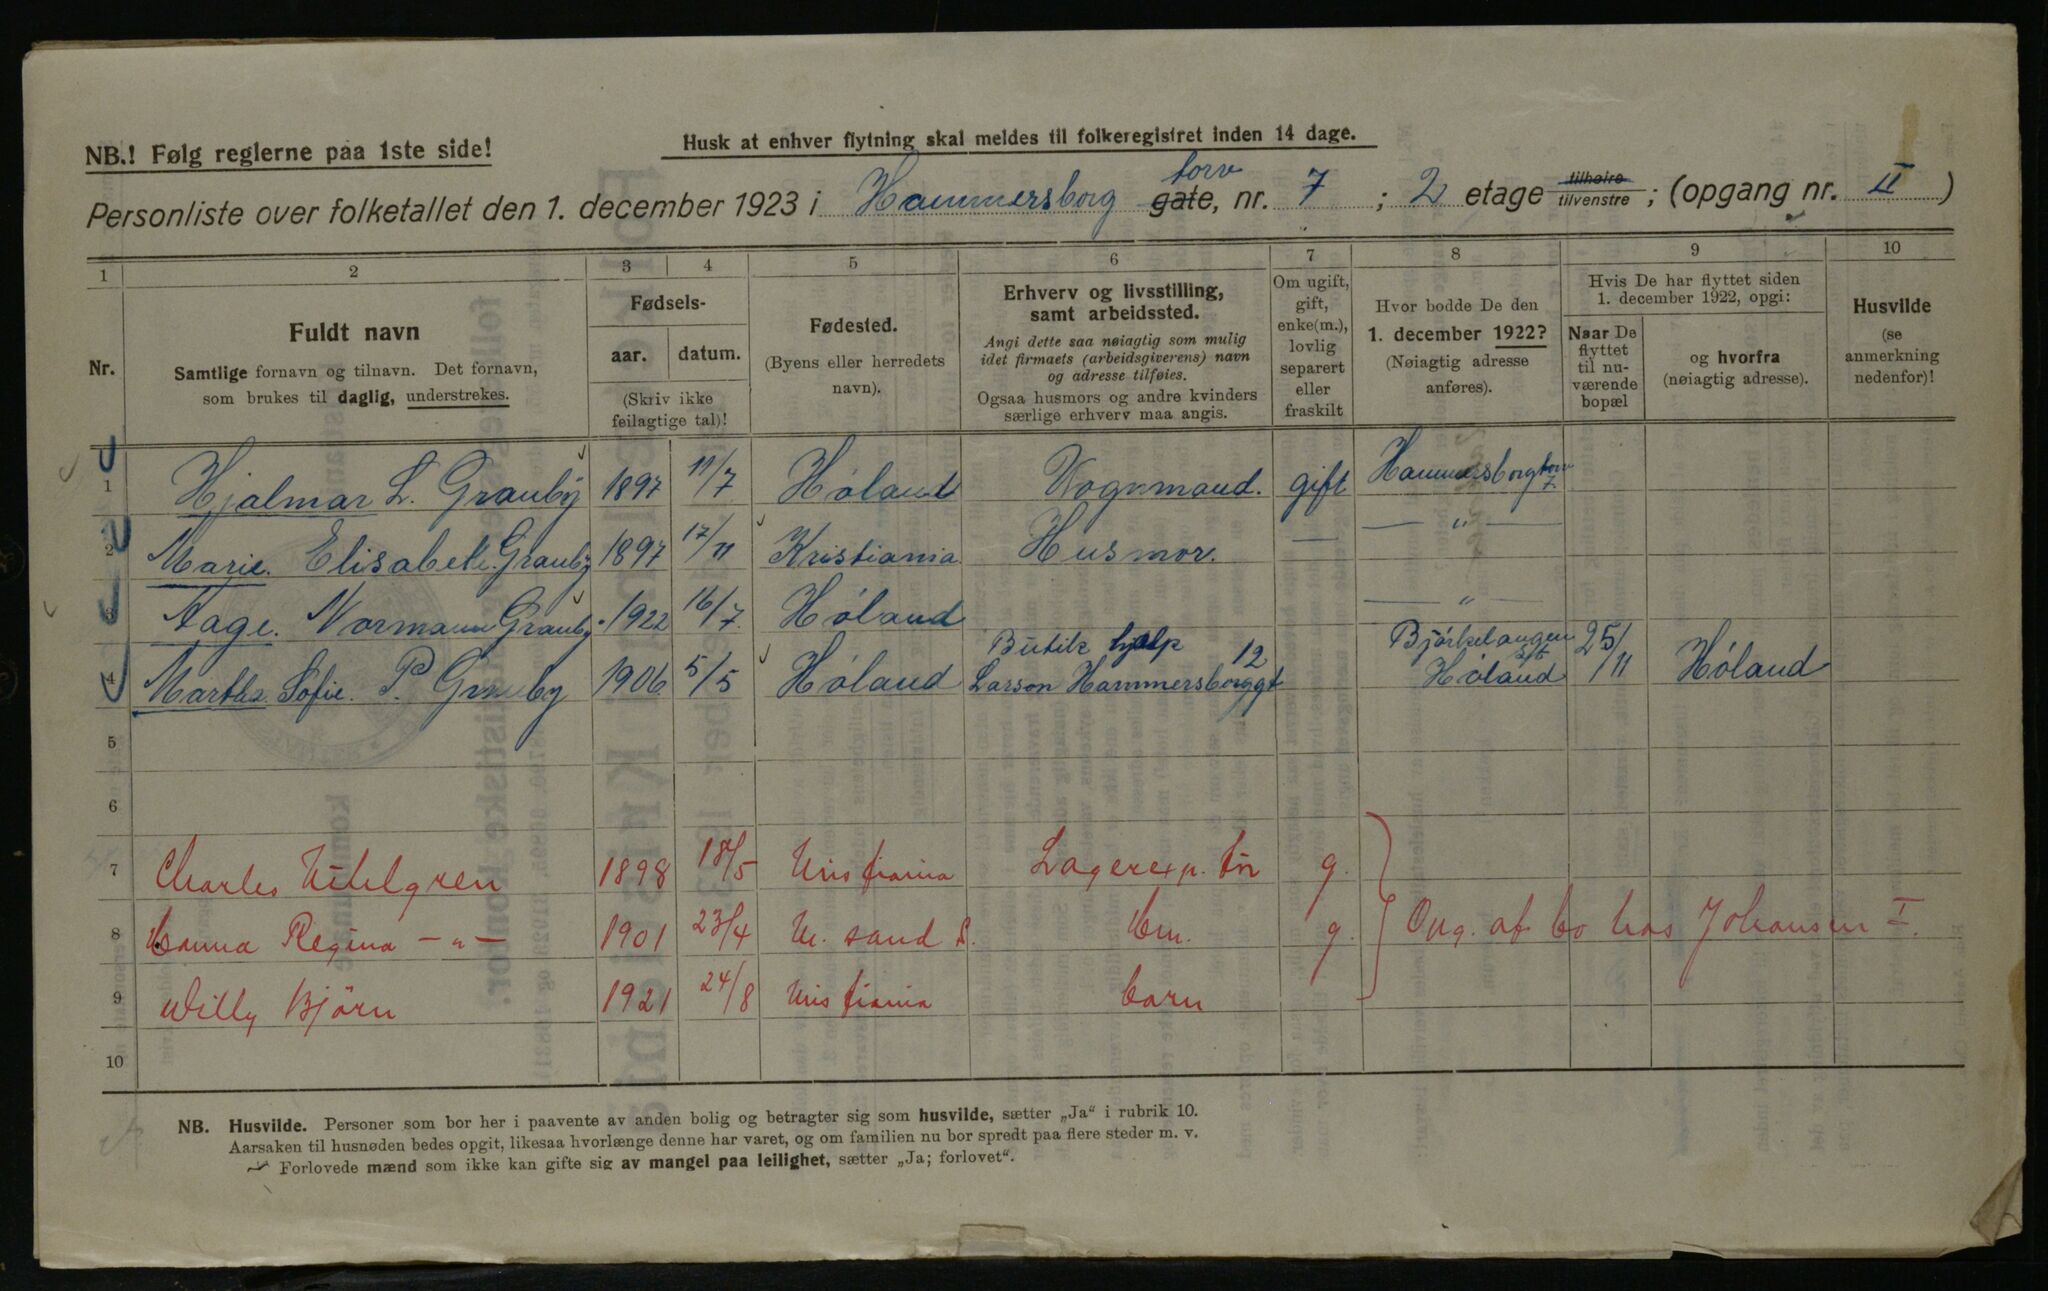 NB.! Følg reglerne paa 1ste side!
Husk at enhver flytning skal meldes til folkeregistret inden 14 dage.
torv
Personliste over folketallet den 1. december 1923 i Hammersborg gate, nr. 7; 2 etage tilhøire tilvenstre; (opgang nr. II)
1 2 3 4 5 6 7 8 9 10
Nr.
Fuldt navn
Samtlige fornavn og tilnavn. Det fornavn,
som brukes til daglig, understrekes.
Fødsels-
aar. datum.
(Skriv ikke
feilagtige tal)!
Fødested.
(Byens eller herredets
navn).
Erhverv og livsstilling,
samt arbeidssted.
Angi dette saa nøiagtig som mulig
idet firmaets (arbeidsgiverens) navn
og adresse tilføies.
Ogsaa husmors og andre kvinders
særlige erhverv maa angis.
Om ugift,
gift,
enke(m.),
lovlig
separert
eller
fraskilt
Hvor bodde De den
1. december 1922?
(Nøiagtig adresse
anføres).
Hvis De har flyttet siden
1. december 1922, opgi:
Naar De
flyttet
til nu-
værende
bopæl
og hvorfra
(nøiagtig adresse).
Husvilde
(se
anmerkning
nedenfor)!
1 Hjalmar L. Grauby 1897 11/7 Høland Vognmand. gift Hammersborgtorv 7
2 Marie Elisabeth Grauby 1897 17/11 Kristiania Husmor. — — " —
3 Aage Normann Grauby 1922 16/7 Høland — " —
4 Martha Sofie P. Grauby 1906 5/5 Høland Butik hjelp Larson Hammersborggt 12 Bjørkelangen Høland 25/11 Høland
5
6
7 Charles Uthlgren 1898 18/5 Kristiania Lagerexp. g.
8 Hanna Regina — " — 1901 23/4 Kr. sand S. hm. g. Opg. at bo hos Johansen I.
9 Willy Bjørn 1921 24/8 Kristiania barn
10
NB. Husvilde. Personer som bor her i paavente av anden bolig og betragter sig som husvilde, sætter „Ja" i rubrik 10.
Aarsaken til husnøden bedes opgit, likesaa hvorlænge denne har varet, og om familien nu bor spredt paa flere steder m. v.
Forlovede mænd som ikke kan gifte sig av mangel paa leilighet, sætter „Ja; forlovet".